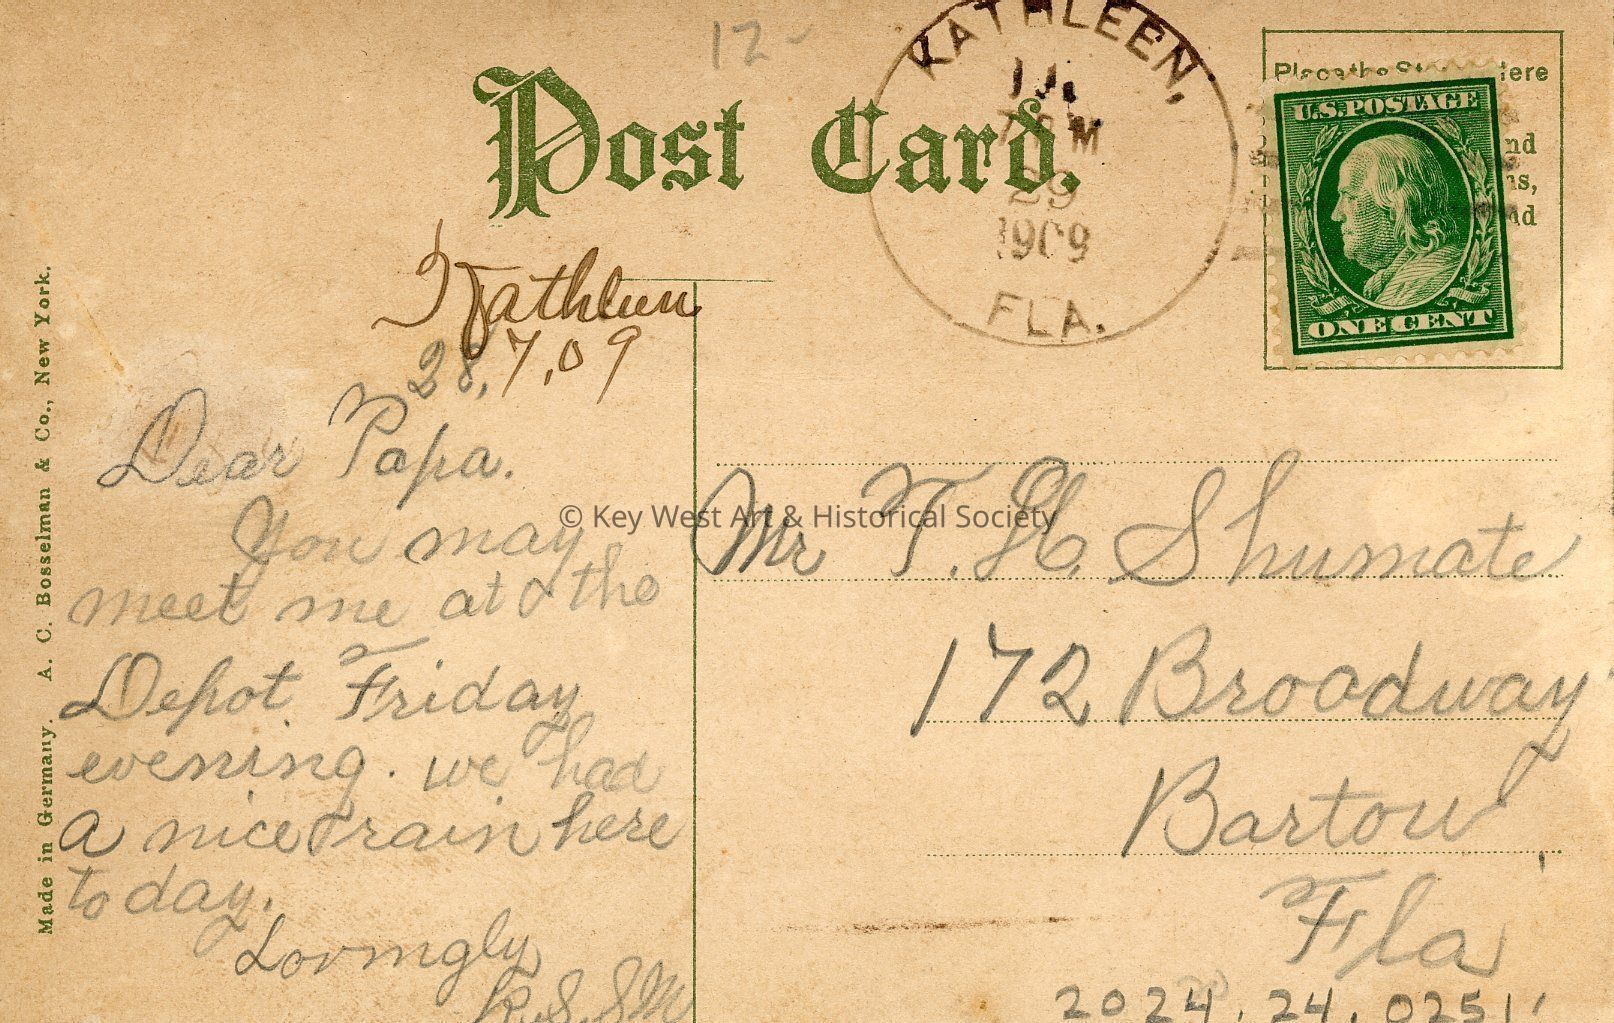 12-
Post Card.
KATHLEEN,
M
29
1909
FLA.
Place the Stamp Here
U.S. POSTAGE
ONE CENT
Made in Germany. A. C. Bosselman & Co., New York.
Kathleen
28, 7, 09
Dear Papa.
You may
meet me at the
Depot Friday
evening. we had
a nice rain here
to day.
Lovingly
© Key West Art & Historical Society
Mr T. H. Shumate
172 Broadway
Bartow
Fla
2024.24.0251